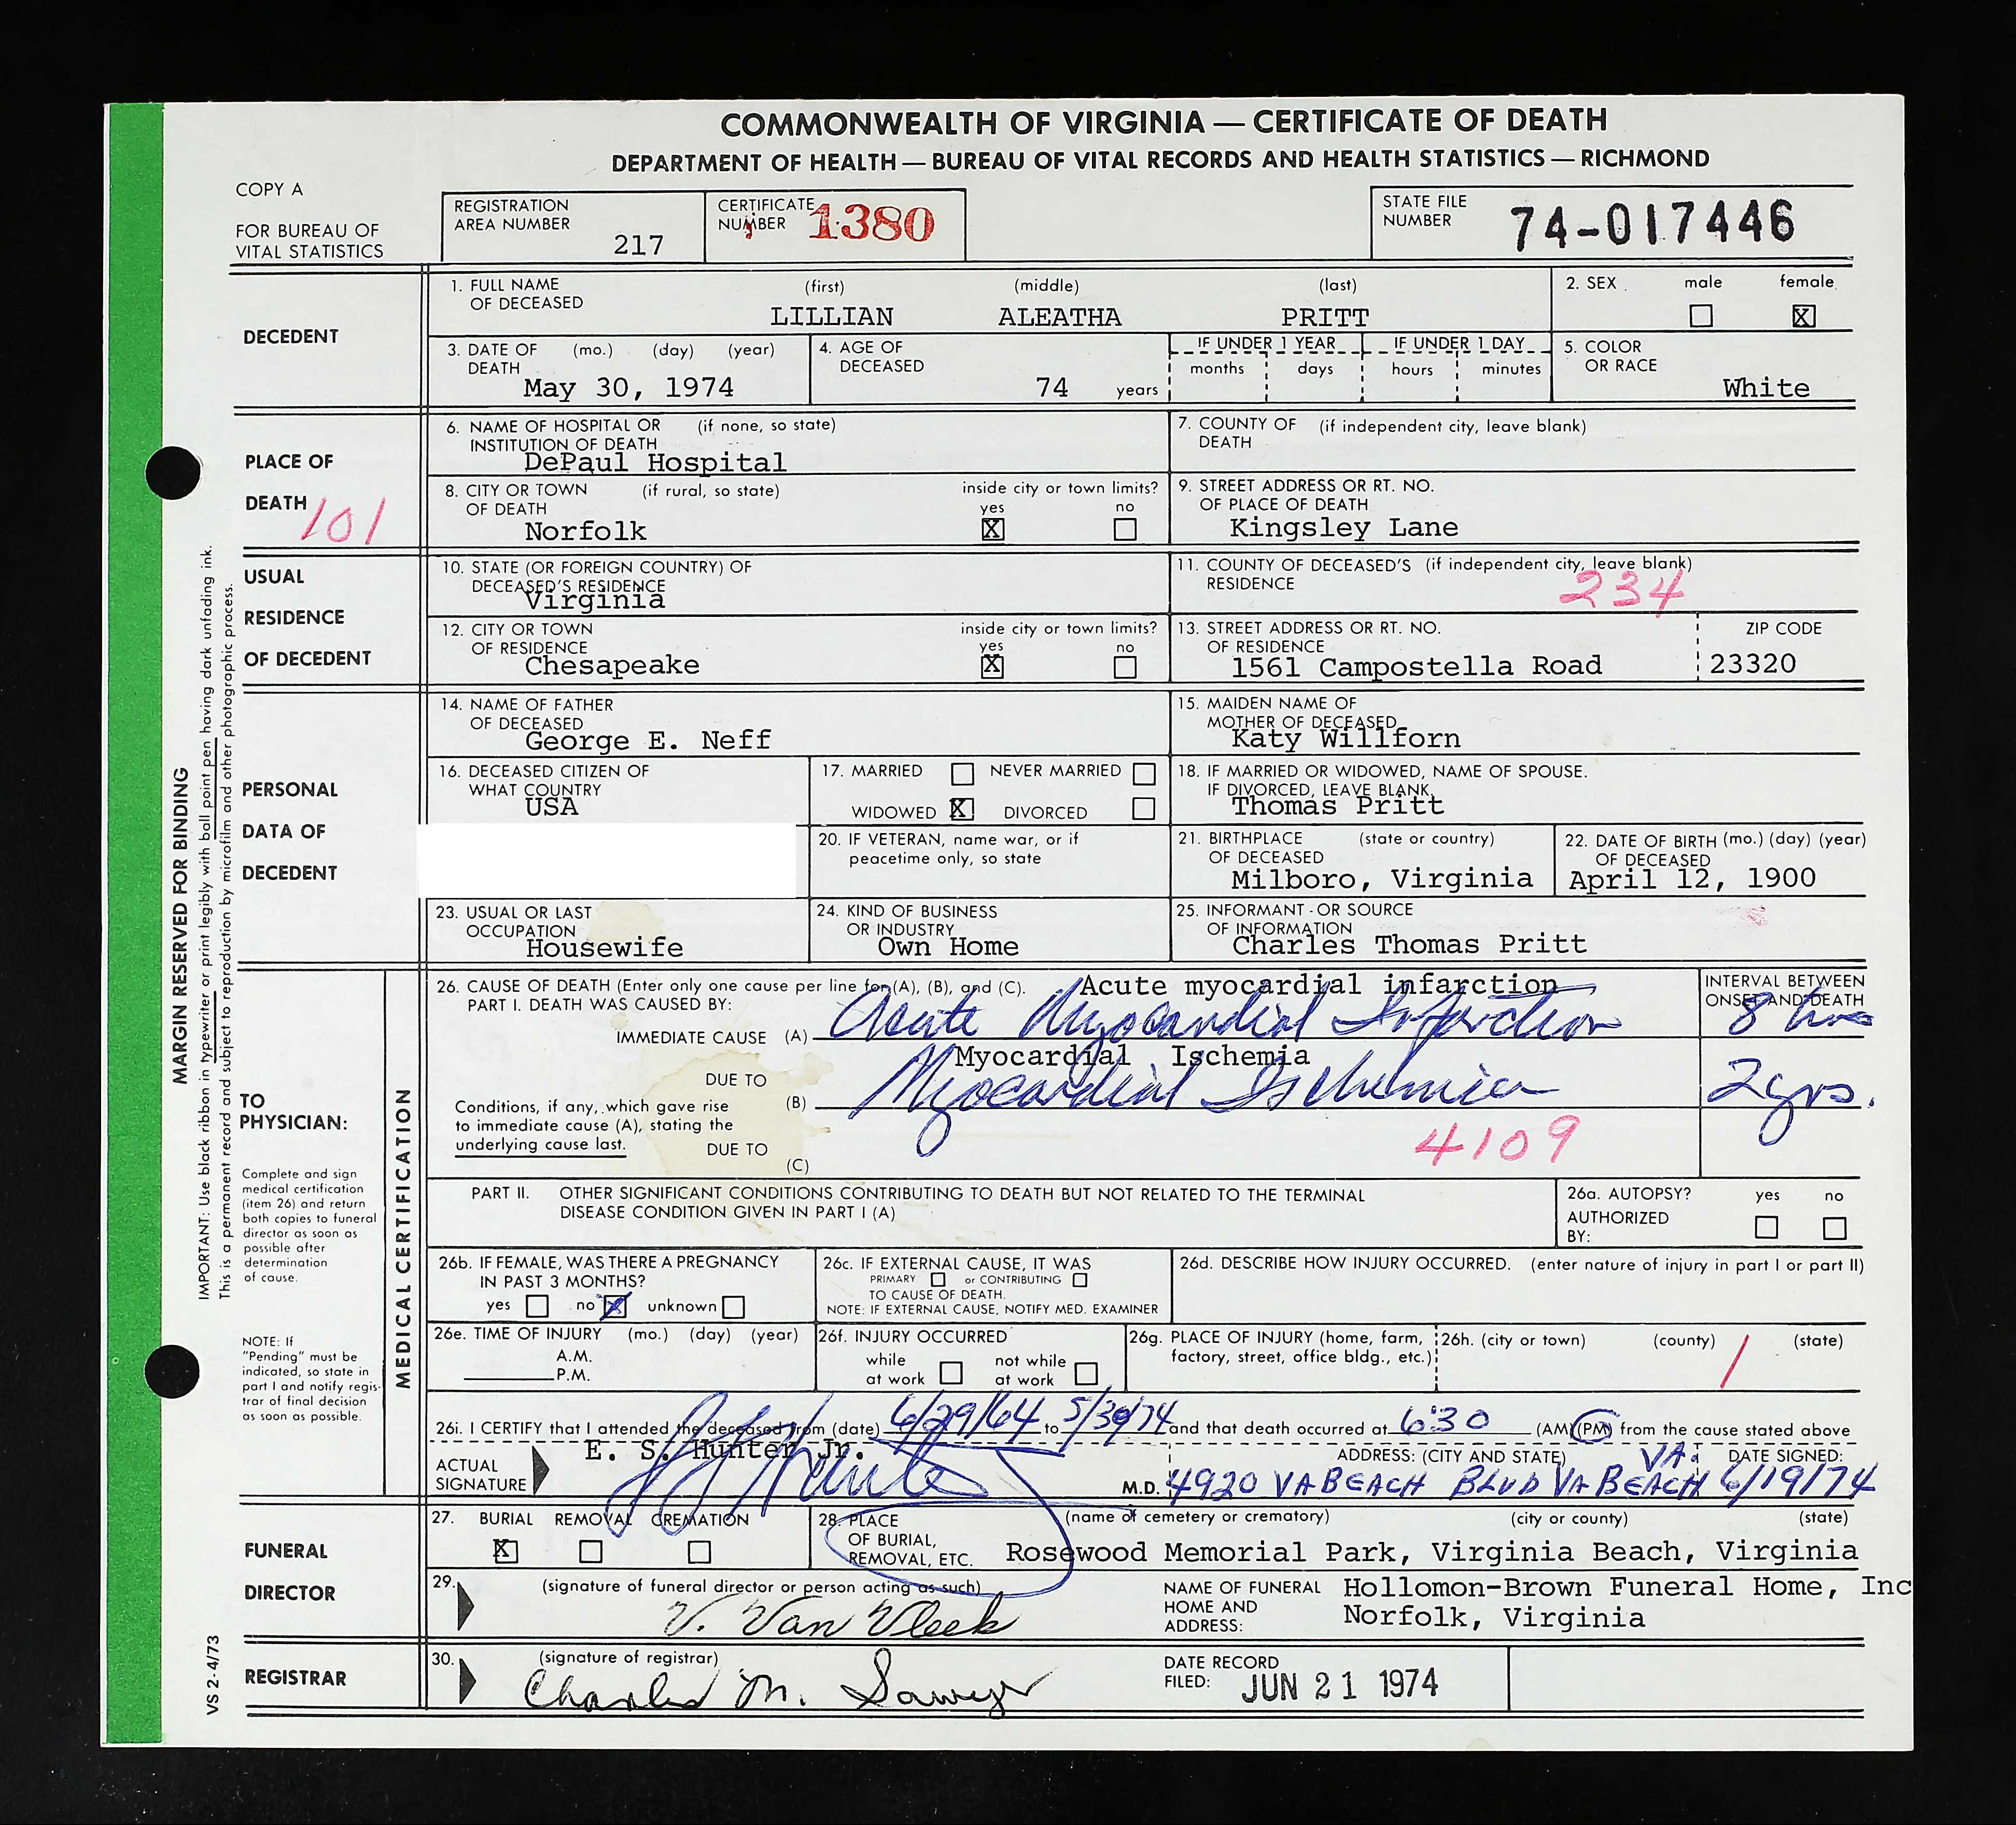 COMMONWEALTH OF VIRGINIA — CERTIFICATE OF DEATH
DEPARTMENT OF HEALTH — BUREAU OF VITAL RECORDS AND HEALTH STATISTICS — RICHMOND
COPY A
FOR BUREAU OF
VITAL STATISTICS
REGISTRATION
AREA NUMBER
217
CERTIFICATE
NUMBER
1380
STATE FILE
NUMBER
74-017446
DECEDENT
1. FULL NAME (first) (middle) (last)
OF DECEASED
LILLIAN ALEATHA PRITT
2. SEX male female
X
3. DATE OF (mo.) (day) (year)
DEATH
May 30, 1974
4. AGE OF
DECEASED
74 years
IF UNDER 1 YEAR
months days
IF UNDER 1 DAY
hours minutes
5. COLOR
OR RACE
White
PLACE OF
DEATH
101
6. NAME OF HOSPITAL OR (if none, so state)
INSTITUTION OF DEATH
DePaul Hospital
7. COUNTY OF (if independent city, leave blank)
DEATH
8. CITY OR TOWN (if rural, so state) inside city or town limits?
OF DEATH yes no
Norfolk X
9. STREET ADDRESS OR RT. NO.
OF PLACE OF DEATH
Kingsley Lane
USUAL
RESIDENCE
OF DECEDENT
10. STATE (OR FOREIGN COUNTRY) OF
DECEASED'S RESIDENCE
Virginia
11. COUNTY OF DECEASED'S (if independent city, leave blank)
RESIDENCE
234
12. CITY OR TOWN inside city or town limits?
OF RESIDENCE yes no
Chesapeake X
13. STREET ADDRESS OR RT. NO. ZIP CODE
OF RESIDENCE
1561 Campostella Road 23320
PERSONAL
DATA OF
DECEDENT
14. NAME OF FATHER
OF DECEASED
George E. Neff
15. MAIDEN NAME OF
MOTHER OF DECEASED
Katy Willforn
16. DECEASED CITIZEN OF
WHAT COUNTRY
USA
17. MARRIED NEVER MARRIED
WIDOWED X DIVORCED
18. IF MARRIED OR WIDOWED, NAME OF SPOUSE.
IF DIVORCED, LEAVE BLANK.
Thomas Pritt
20. IF VETERAN, name war, or if
peacetime only, so state
21. BIRTHPLACE (state or country)
OF DECEASED
Milboro, Virginia
22. DATE OF BIRTH (mo.) (day) (year)
OF DECEASED
April 12, 1900
23. USUAL OR LAST
OCCUPATION
Housewife
24. KIND OF BUSINESS
OR INDUSTRY
Own Home
25. INFORMANT - OR SOURCE
OF INFORMATION
Charles Thomas Pritt
MARGIN RESERVED FOR BINDING
IMPORTANT: Use black ribbon in typewriter or print legibly with ball point pen having dark unfading ink.
This is a permanent record and subject to reproduction by microfilm and other photographic process.
TO
PHYSICIAN:
Complete and sign
medical certification
(item 26) and return
both copies to funeral
director as soon as
possible after
determination
of cause.
NOTE: If
"Pending" must be
indicated, so state in
part I and notify regis-
trar of final decision
as soon as possible.
MEDICAL CERTIFICATION
26. CAUSE OF DEATH (Enter only one cause per line for (A), (B), and (C).
PART I. DEATH WAS CAUSED BY:
Acute myocardial infarction
IMMEDIATE CAUSE (A) Acute Myocardial Infarction
INTERVAL BETWEEN
ONSET AND DEATH
8 hrs
Myocardial Ischemia
DUE TO
(B) Myocardial Ischemia
2 yrs.
Conditions, if any, which gave rise
to immediate cause (A), stating the
underlying cause last.
DUE TO
(C)
4109
PART II. OTHER SIGNIFICANT CONDITIONS CONTRIBUTING TO DEATH BUT NOT RELATED TO THE TERMINAL
DISEASE CONDITION GIVEN IN PART I (A)
26a. AUTOPSY? yes no
AUTHORIZED
BY:
26b. IF FEMALE, WAS THERE A PREGNANCY
IN PAST 3 MONTHS?
yes no X unknown
26c. IF EXTERNAL CAUSE, IT WAS
PRIMARY or CONTRIBUTING
TO CAUSE OF DEATH.
NOTE: IF EXTERNAL CAUSE, NOTIFY MED. EXAMINER
26d. DESCRIBE HOW INJURY OCCURRED. (enter nature of injury in part I or part II)
26e. TIME OF INJURY (mo.) (day) (year)
A.M.
P.M.
26f. INJURY OCCURRED
while not while
at work at work
26g. PLACE OF INJURY (home, farm,
factory, street, office bldg., etc.)
26h. (city or town) (county) (state)
/
26i. I CERTIFY that I attended the deceased from (date) 6/29/64 to 5/30/74 and that death occurred at 6:30 (AM) (PM) from the cause stated above
E. S. Hunter Jr.
ACTUAL
SIGNATURE
ADDRESS: (CITY AND STATE) DATE SIGNED:
M.D. 4920 VA BEACH BLVD VA BEACH VA. 6/19/74
FUNERAL
DIRECTOR
27. BURIAL REMOVAL CREMATION
X
28. PLACE
OF BURIAL,
REMOVAL, ETC.
(name of cemetery or crematory) (city or county) (state)
Rosewood Memorial Park, Virginia Beach, Virginia
29. (signature of funeral director or person acting as such)
V. Van Vleek
NAME OF FUNERAL
HOME AND
ADDRESS:
Hollomon-Brown Funeral Home, Inc
Norfolk, Virginia
REGISTRAR
30. (signature of registrar)
Charles M. Sawyer
DATE RECORD
FILED:
JUN 21 1974
VS 2-4/73